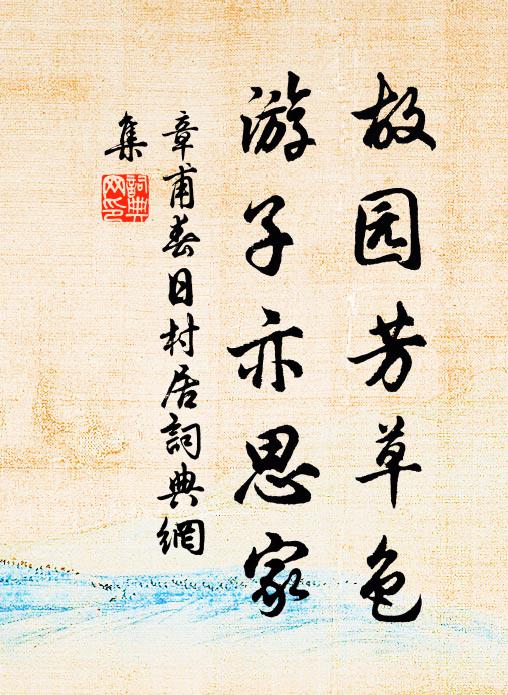 故园芳草色
游子亦思家
章甫春日村居詞典網
集
詞典
网印